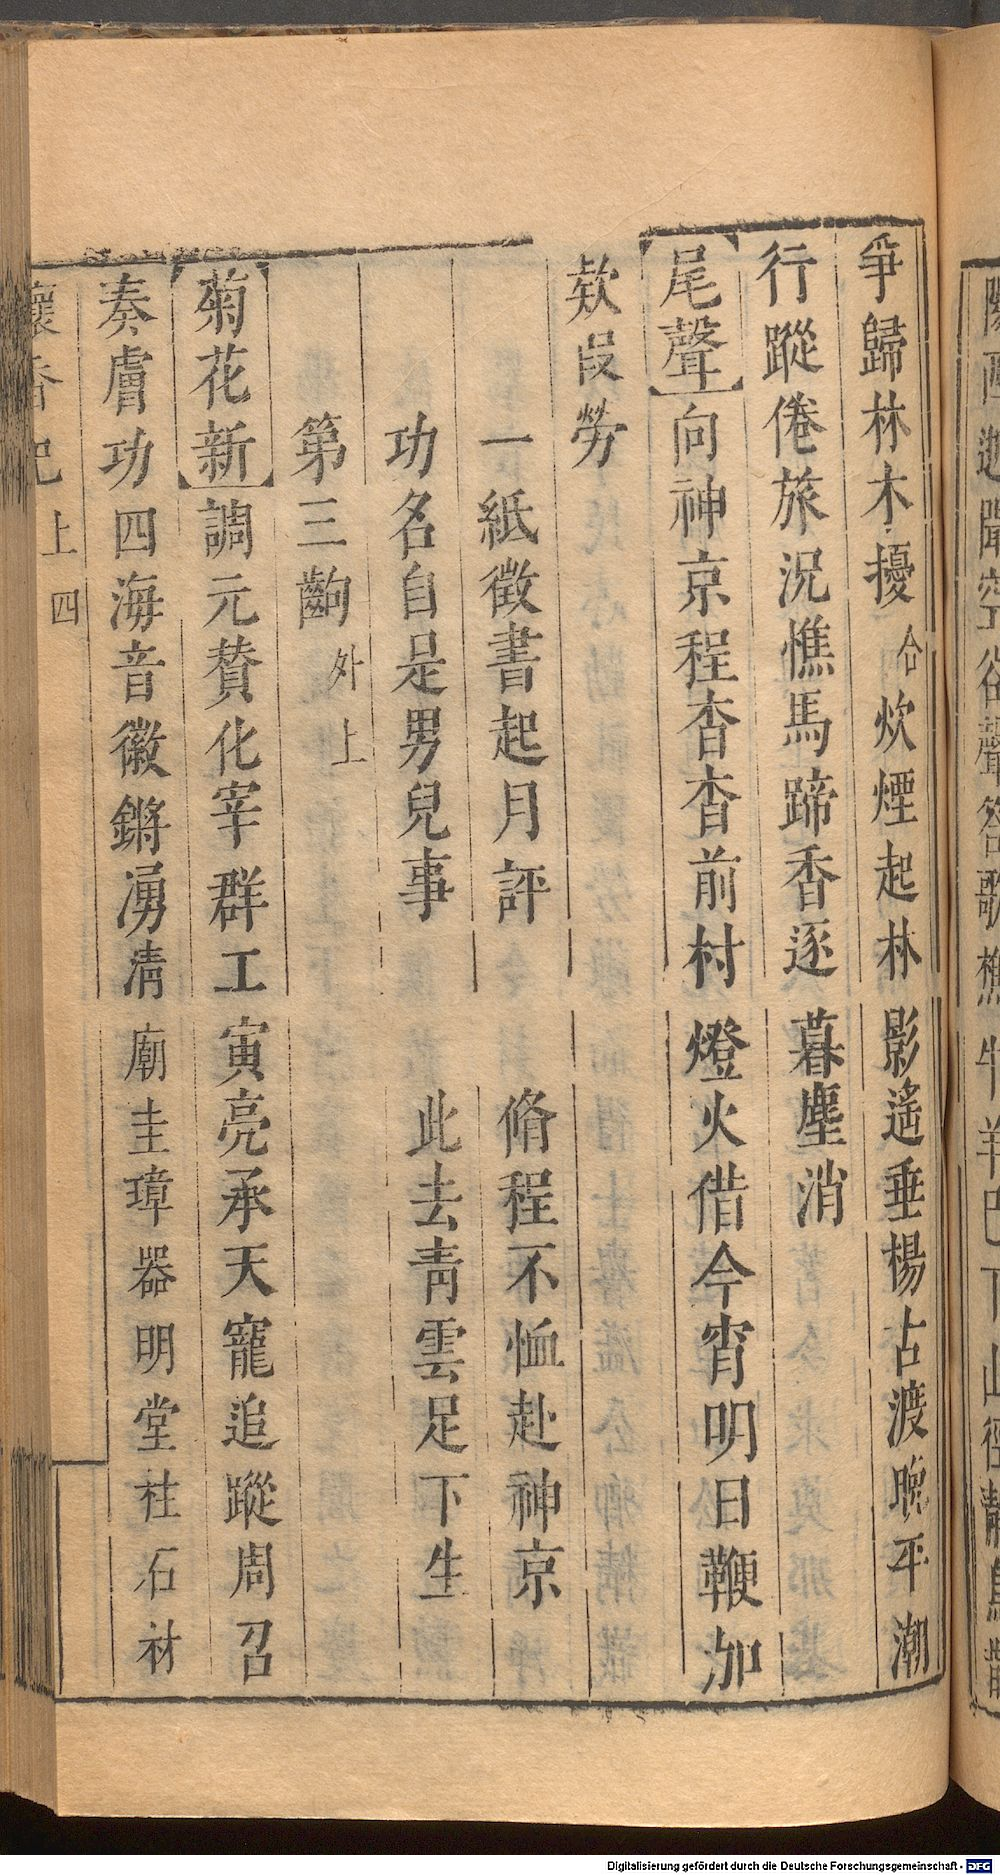 爭歸林木擾 合 炊煙起林影遙垂楊古渡晚平潮
行蹤倦旅況憔馬蹄香逐暮塵消
【尾聲】向神京程杳杳前村燈火借今宵明日鞭加
欵段勞
一紙徵書起月評 脩程不恤赴神京
功名自是男兒事 此去青雲足下生
第三齣 外上
【菊花新】調元贊化宰群工寅亮承天寵追蹤周召
奏膚功四海音徽鏘湧清廟圭璋器明堂柱石材
懷香記 上 四
Digitalisierung gefördert durch die Deutsche Forschungsgemeinschaft - DFG